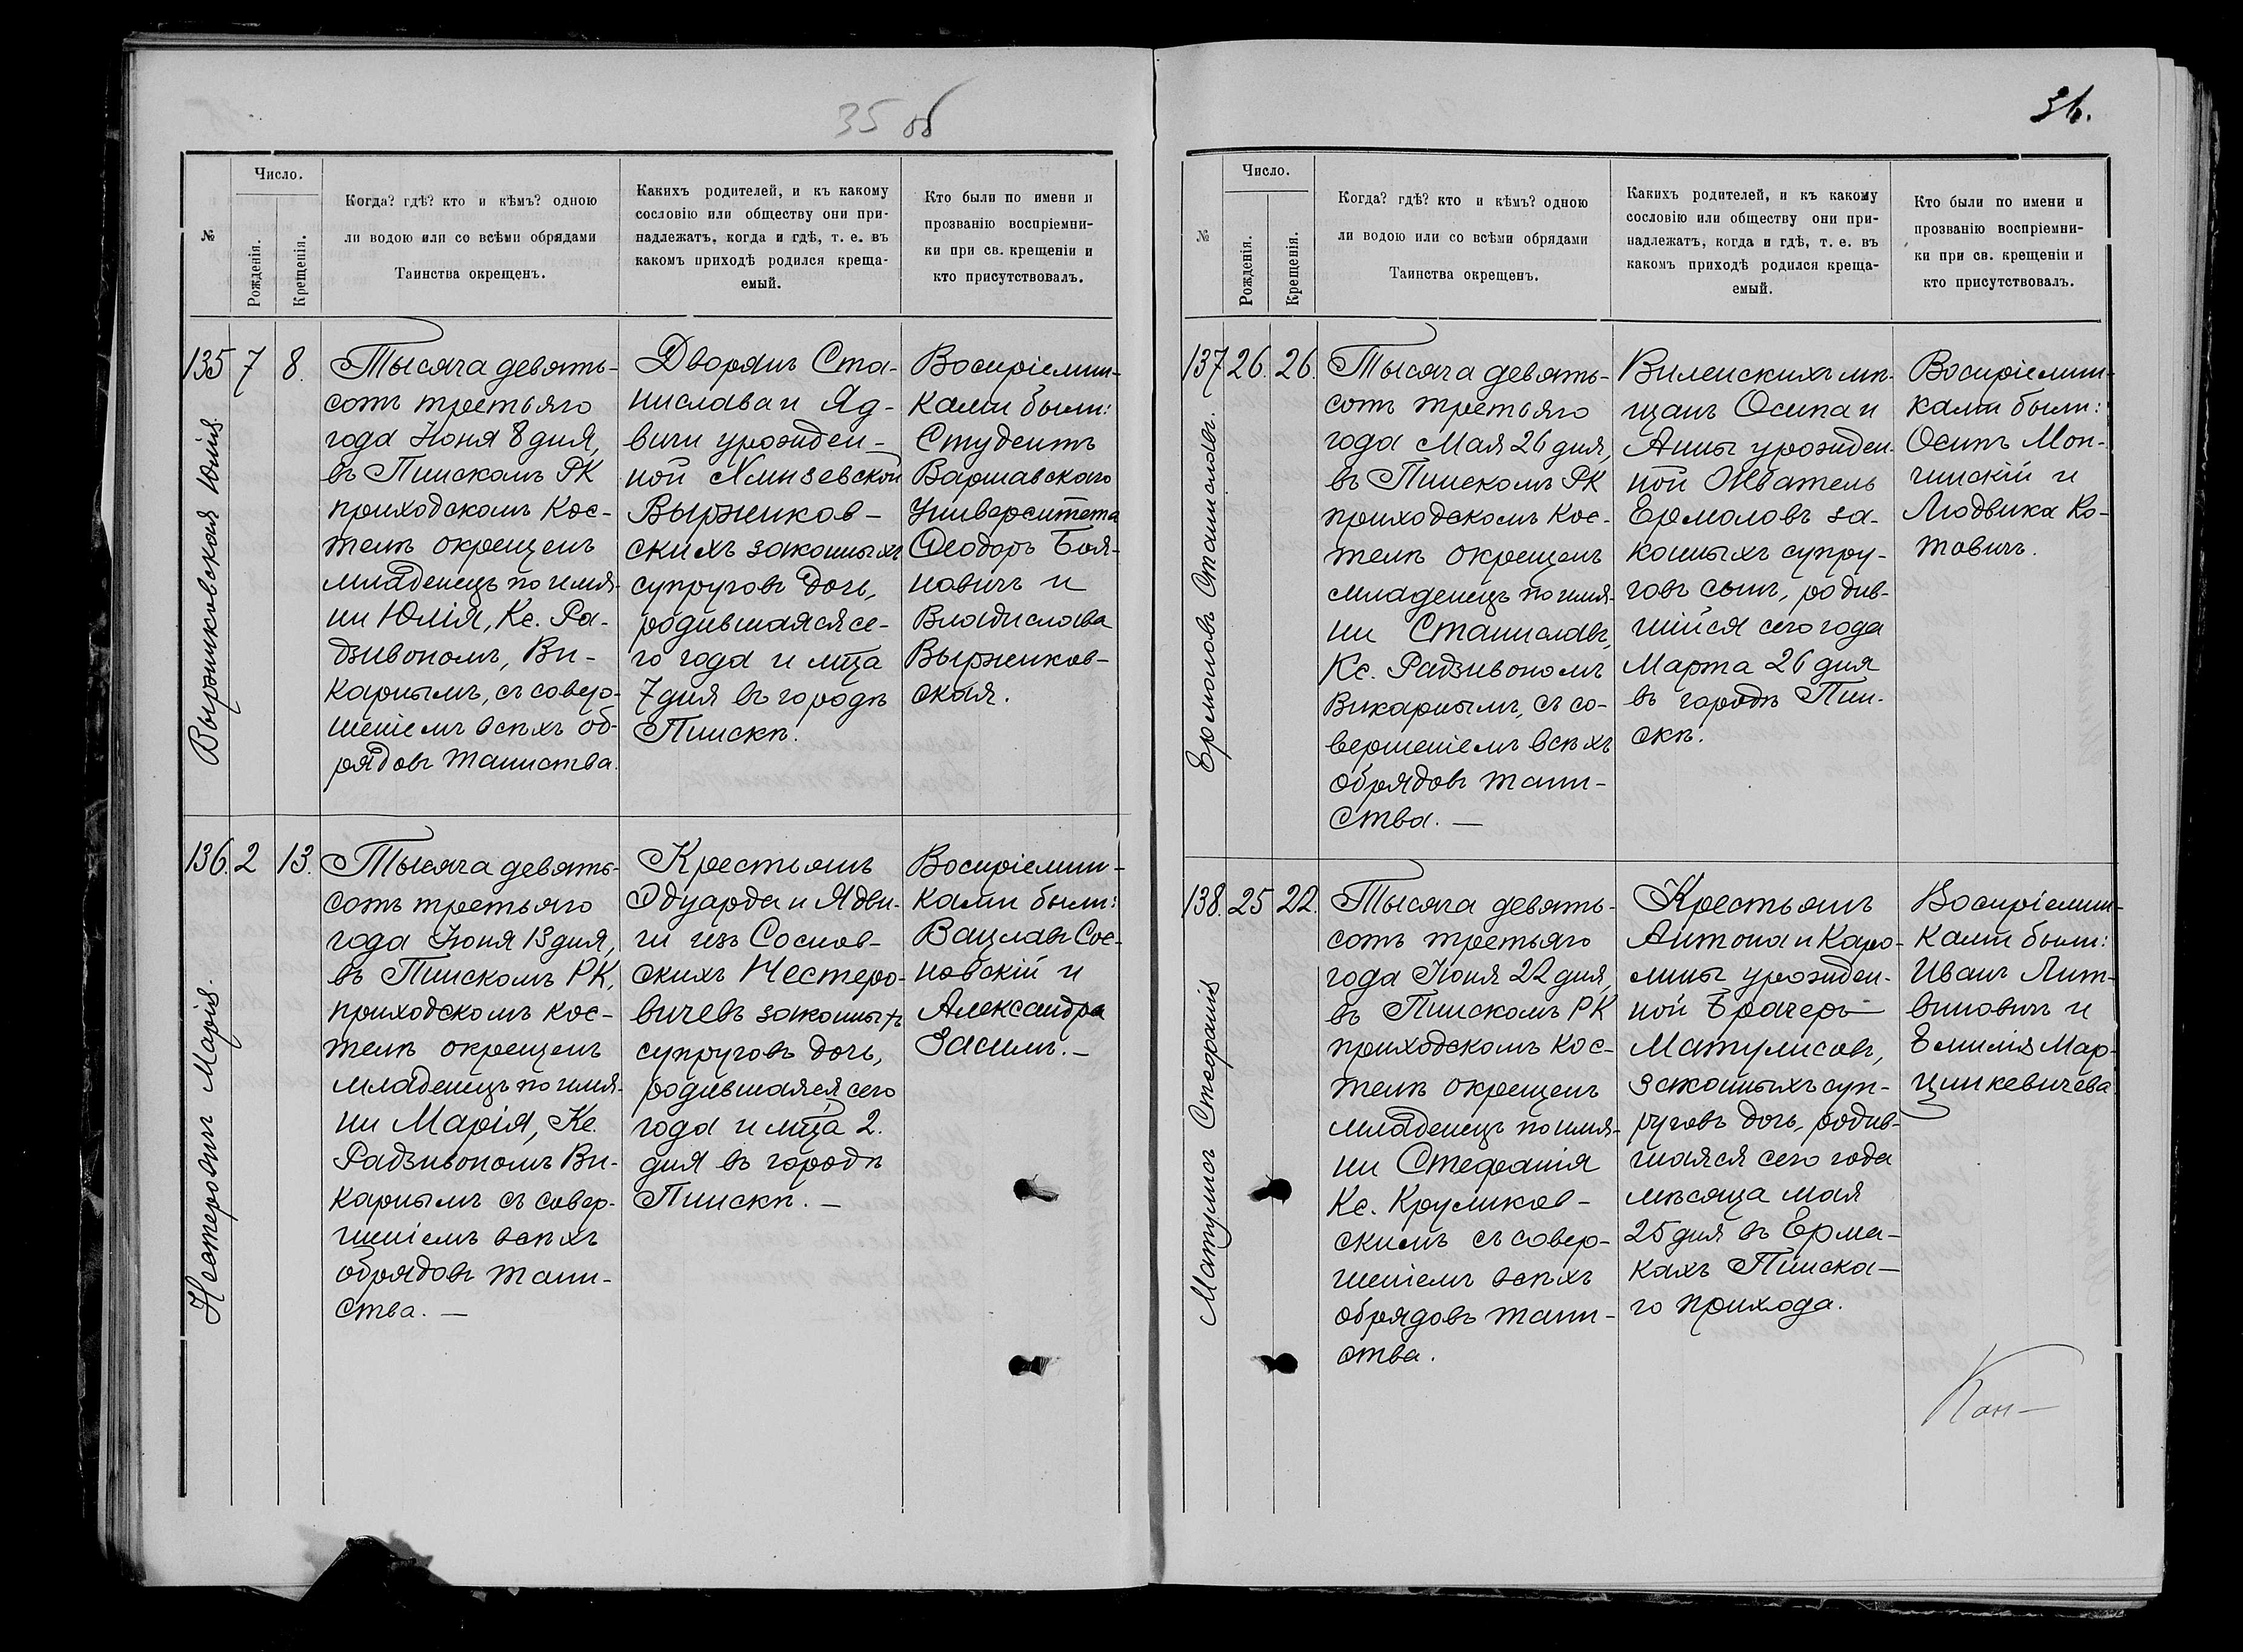 35 об
№
Число.
Рожденія.
Крещенія.
Когда? гдѣ? кто и кѣмъ? одною
ли водою или со всѣми обрядами
Таинства окрещенъ.
Какихъ родителей, и къ какому
сословію или обществу они при-
надлежатъ, когда и гдѣ, т. е. въ
какомъ приходѣ родился креща-
емый.
Кто были по имени и
прозванію воспріемни-
ки при св. крещеніи и
кто присутствовалъ.
135
7
8.
Выржиковская Юлія
Тысяча девять-
сотъ третьяго
года Іюня 8 дня,
въ Пинскомъ РК
приходскомъ Кос-
телѣ окрещенъ
младенецъ по имя-
ни Юлія, Кс. Ра-
дзивономъ, Ви-
карнымъ, съ совер-
шеніемъ всѣхъ об-
рядовъ таинства.
Дворянъ Ста-
нислава и Яд-
виги урожден-
ной
Выржиков-
скихъ законныхъ
супруговъ дочь,
родившаяся се-
го года и мца
7 дня въ городѣ
Пинскѣ.
Воспріемни-
ками были:
Студентъ
Варшавскаго
Университета
Ѳеодоръ Боя-
новичъ и
Владислава
Выржиков-
ская.
136.
2
13.
Нестеровичъ Марія.
Тысяча девять-
сотъ третьяго
года Іюня 13 дня,
въ Пинскомъ РК,
приходскомъ кос-
телѣ окрещенъ
младенецъ по имя-
ни Марія, Кс.
Радзивономъ Ви-
карнымъ съ совер-
шеніемъ всѣхъ
обрядовъ таин-
ства. —
Крестьянъ
Эдуарда и Ядви-
ги изъ Соснов-
скихъ Нестеро-
вичевъ законныхъ
супруговъ дочь,
родившаяся сего
года и мца 2.
дня въ городѣ
Пинскѣ. —
Воспріемни-
ками были:
Вацлавъ Сос-
новскій и
Александра
Засимъ. —
36.
№
Число.
Рожденія.
Крещенія.
Когда? гдѣ? кто и кѣмъ? одною
ли водою или со всѣми обрядами
Таинства окрещенъ.
Какихъ родителей, и къ какому
сословію или обществу они при-
надлежатъ, когда и гдѣ, т. е. въ
какомъ приходѣ родился креща-
емый.
Кто были по имени и
прозванію воспріемни-
ки при св. крещеніи и
кто присутствовалъ.
137
26.
26.
Ермоловъ Станиславъ.
Тысяча девять-
сотъ третьяго
года Мая 26 дня,
въ Пинскомъ РК
приходскомъ Кос-
телѣ окрещенъ
младенецъ по имя-
ни Станиславъ,
Кс. Радзивономъ
Викарнымъ, съ со-
вершеніемъ всѣхъ
обрядовъ таин-
ства. —
Виленскихъ мѣ-
щанъ Осипа и
Анны урожден-
ной
Ермоловъ за-
конныхъ супру-
говъ сынъ, родив-
шійся сего года
Марта 26 дня
въ городѣ Пин-
скѣ.
Воспріемни-
ками были:
Осипъ Мон-
чинскій и
Людвика Ко-
товичъ.
138.
25
22.
Матулисъ Стефанія
Тысяча девять-
сотъ третьяго
года Іюня 22 дня,
въ Пинскомъ РК
приходскомъ кос-
телѣ окрещенъ
младенецъ по имя-
ни Стефанія
Кс. Круликов-
скимъ съ совер-
шеніемъ всѣхъ
обрядовъ таин-
ства.
Крестьянъ
Антона и Каро-
лины урожден-
ной Брачеръ
Матулисовъ,
законныхъ суп-
руговъ дочь, родив-
шаяся сего года
мѣсяца мая
25 дня въ Ерма-
кахъ Пинска-
го прихода.
Воспріемни-
ками были:
Иванъ Лит-
виновичъ и
Емилія Мар-
цинкевичева
Кан—